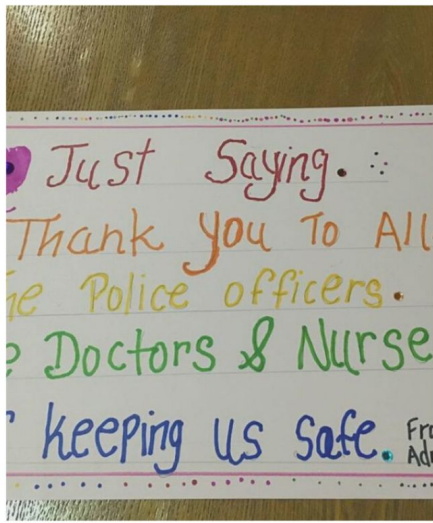 Just Saying.
Thank you To All
he Police officers.
e Doctors & Nurse
keeping us safe.
Fro
Adr